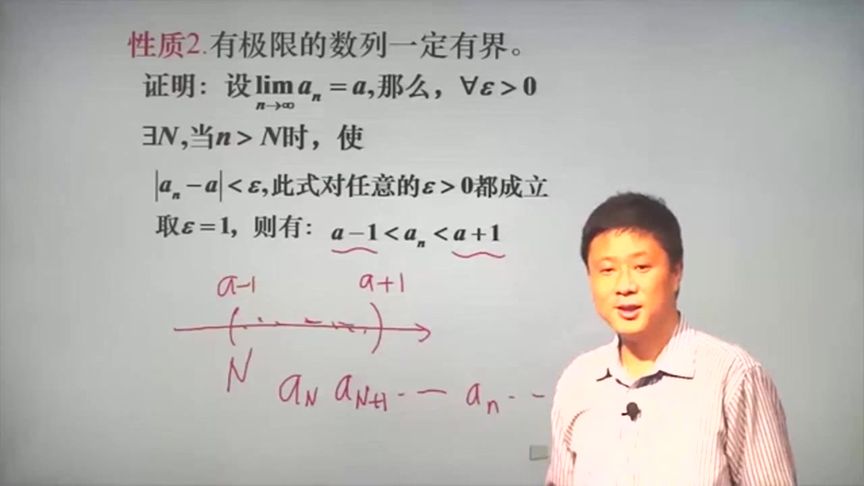 性质2.有极限的数列一定有界。
证明：设lim aₙ = a,那么，∀ε > 0
n→∞
∃N,当n > N时，使
|aₙ − a| < ε,此式对任意的ε > 0都成立
取ε = 1，则有：a − 1 < aₙ < a + 1
a-1 a+1
( )
N
a_N a_{N+1} ·– — aₙ ·- -